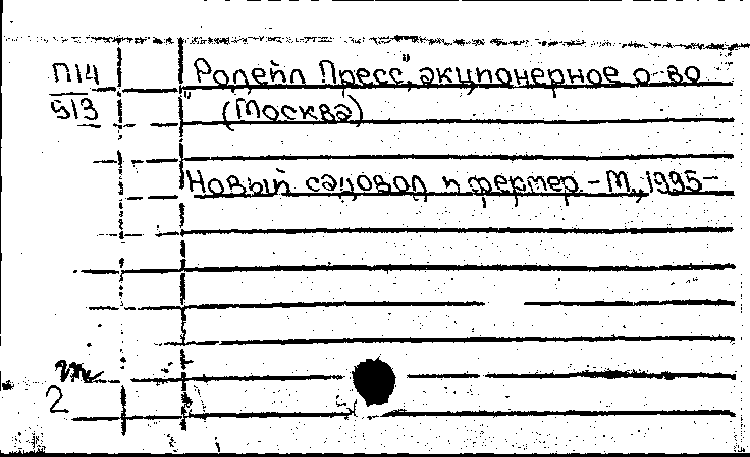 П14
513
"Родейл Пресс", акционерное о-во
(Москва)
Новый садовод и фермер. - М., 1995-
2